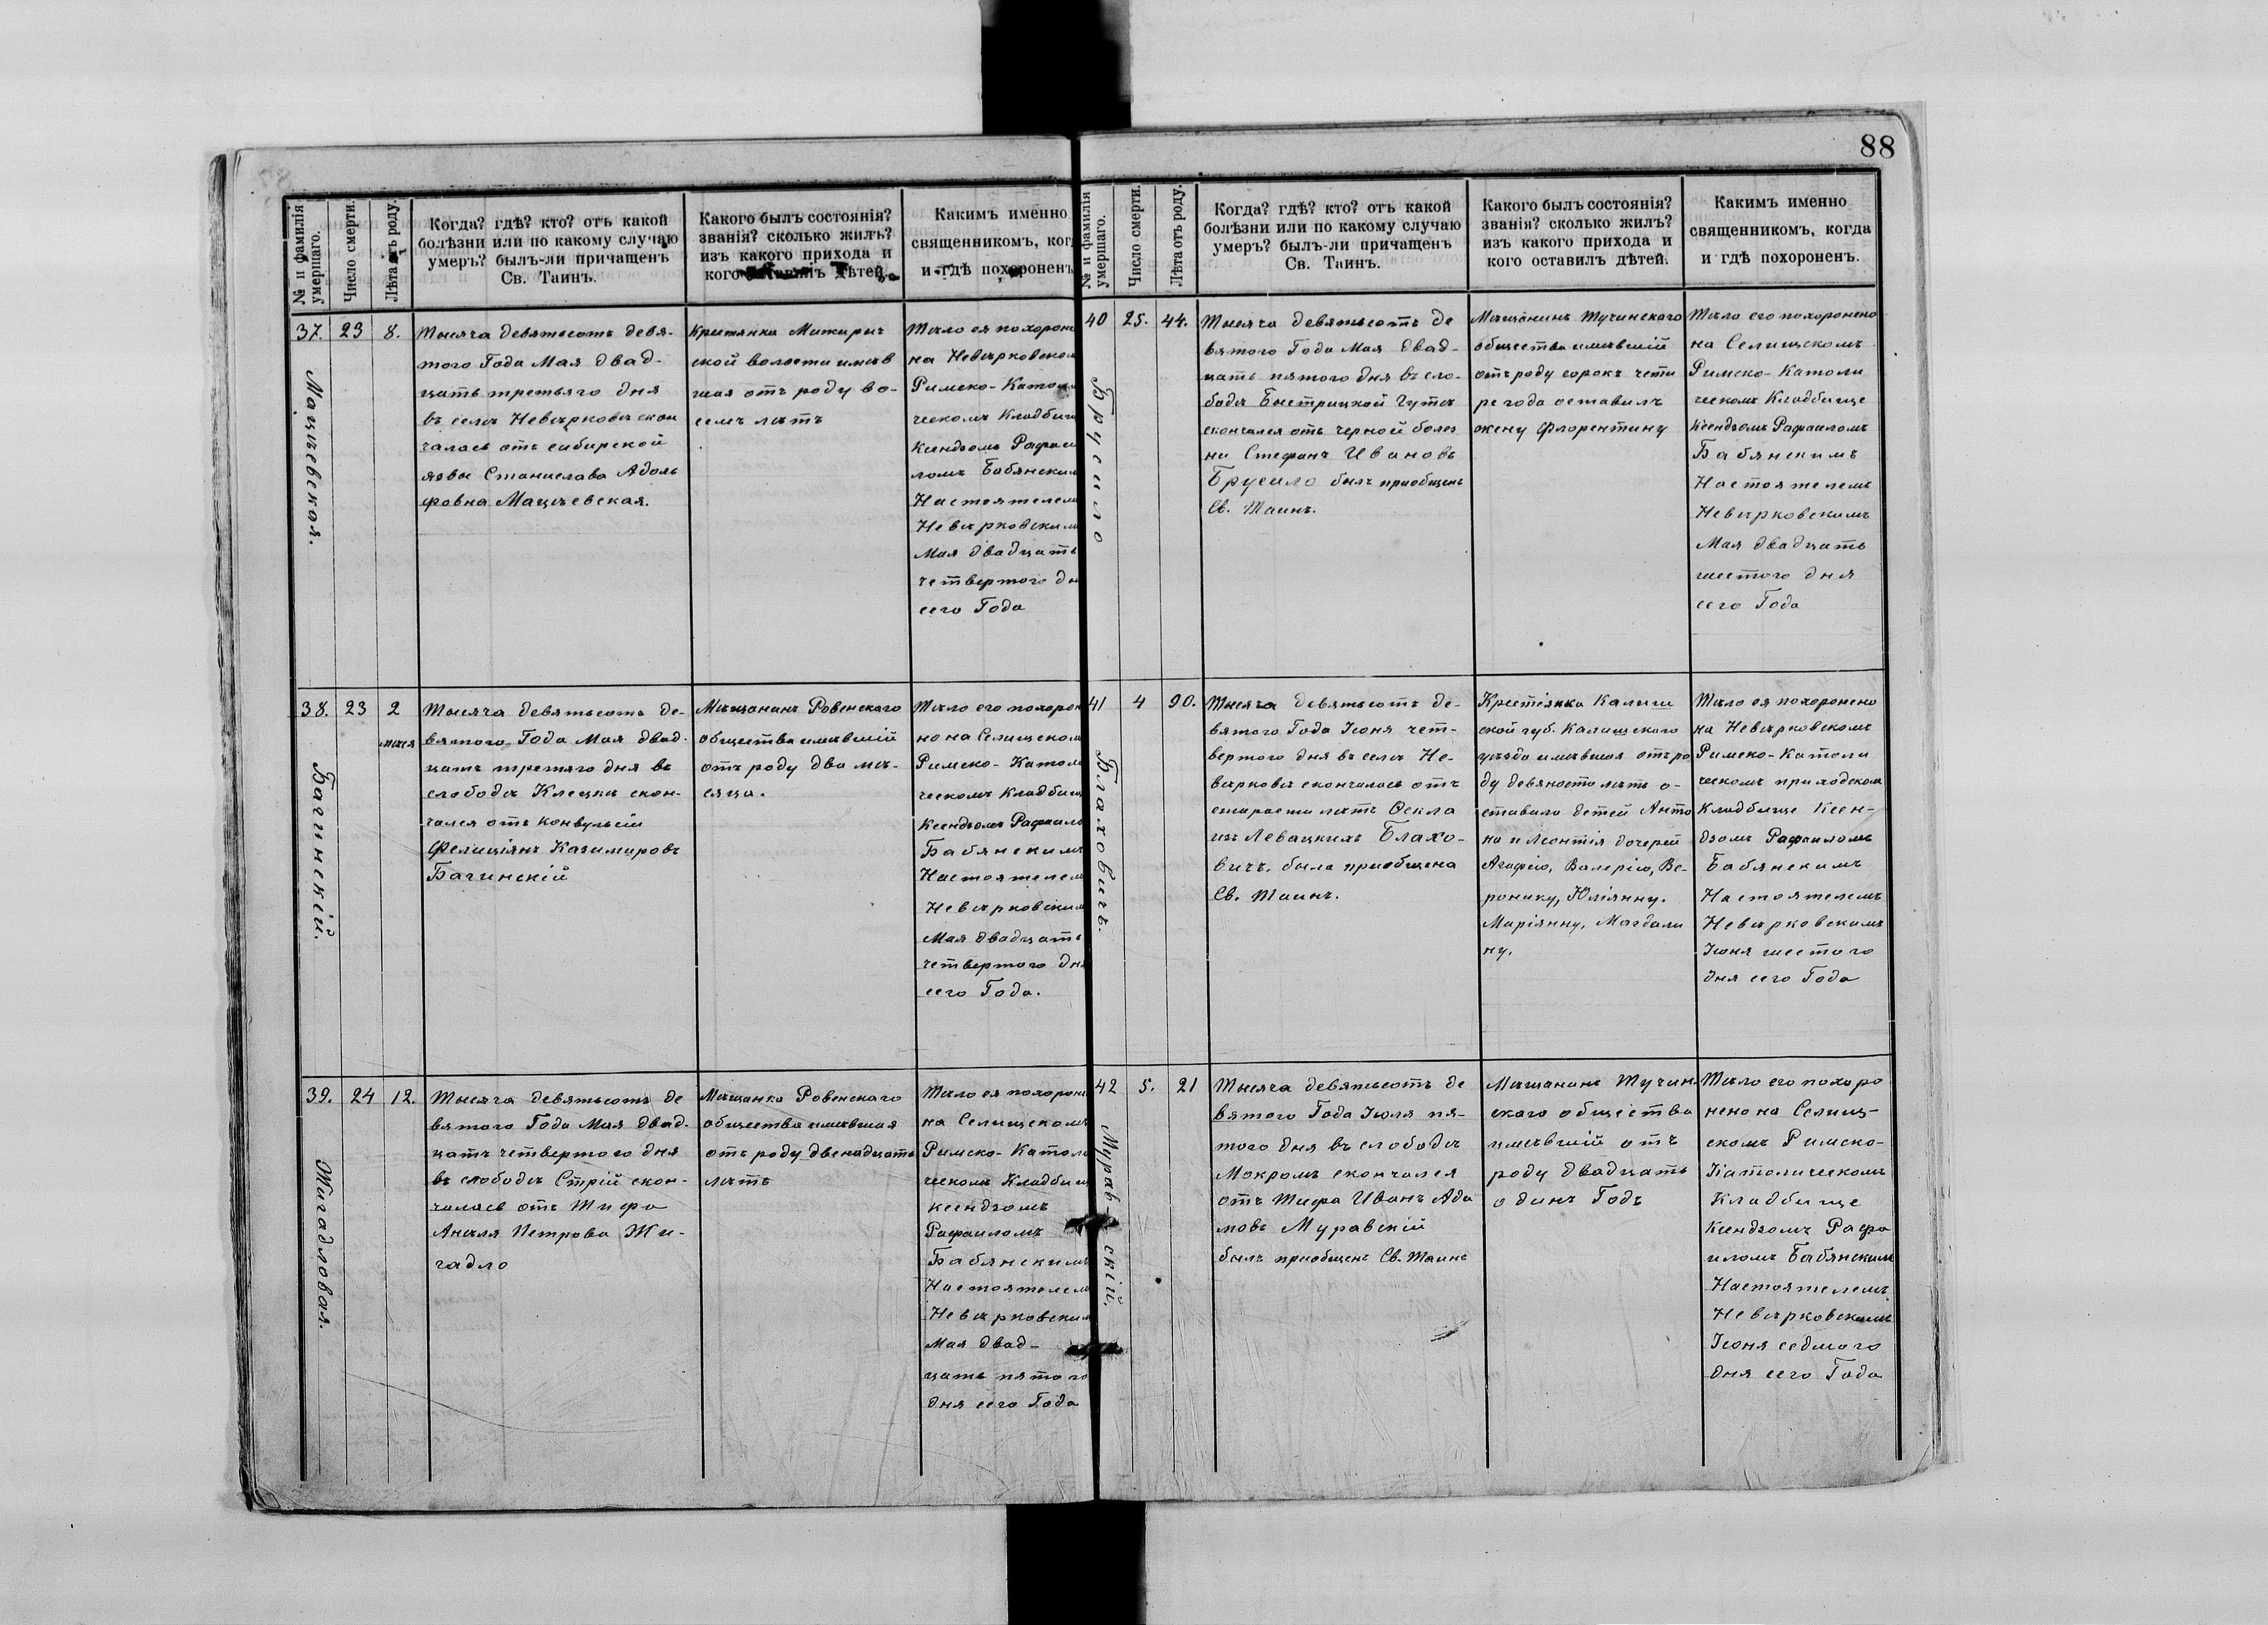 88
№ и фамилія умершаго.
Число смерти.
Лѣта отъ роду.
Когда? гдѣ? кто? отъ какой
болѣзни или по какому случаю
умеръ? былъ-ли причащенъ
Св. Таинъ.
Какого былъ состоянія?
званія? сколько жилъ?
изъ какого прихода и
кого оставилъ дѣтей.
Каким​ъ именно
священникомъ, ког
и гдѣ похороненъ
37.
Мацѣевская.
23
8.
Тысяча девятьсотъ девя-
того Года Мая двад-
цать третьяго дня
въ селѣ Невѣрковѣ скон
чалась отъ сибирской
язвы Станислава Адоль
фовна Мацѣевская.
Крестянка Межирич
ской волости имѣв
шая отъ роду во-
семъ лѣтъ
Тѣло ея похороне
на Невѣрковском
Римско-Катол
ческомъ Кладбищ
Ксендзомъ Рафаи
ломъ Бабянским
Настоятелем
Невѣрковским
Мая двадцать
четвертого дн
сего Года
38.
Багинскій.
23
2
месяя
Тысяча девятьсотъ де-
вятого Года Мая двад-
цать третяго дня въ
слободѣ Клецкѣ скон-
чался отъ конвульсіи
Фелиціянъ Казимировъ
Багинскій
Мѣщанинъ Ровенскаго
общества имѣвшій
отъ роду два мѣ-
сяца.
Тѣло его похорон
но на Селищском
Римско-Катол
ческомъ Кладбищ
Ксендзомъ Рафаило
Бабянскимъ
Настоятелем
Невѣрковским
Мая двадцать
четвертого дня
сего Года.
39.
Жигадловая.
24
12.
Тысяча девятьсотъ де
вятого Года Мая двад-
цать четвертого дня
въ слободѣ Стрій скон-
чалась отъ Тифа
Анѣля Петрова Жи-
гадло
Мѣщанка Ровенскаго
общества имѣвшая
отъ роду двенадцать
лѣтъ
Тѣло ея похороне
на Селищскомъ
Римско-Катол
ческомъ Кладбищ
ксендзомъ
Рафаиломъ
Бабянскимъ
Настоятелем
Невѣрковским
Мая двад-
цать пятого
дня сего Года
№ и фамилія умершаго.
Число смерти.
Лѣта отъ роду.
Когда? гдѣ? кто? отъ какой
болѣзни или по какому случаю
умеръ? былъ-ли причащенъ
Св. Таинъ.
Какого былъ состоянія?
званія? сколько жилъ?
изъ какого прихода и
кого оставилъ дѣтей.
Какимъ именно
священникомъ, когда
и гдѣ похороненъ.
40
Брусило
25.
44.
Тысяча девятьсотъ де
вятого Года Мая двад-
цать пятого дня въ сло-
бодѣ Быстрицкой Гутѣ
скончался отъ черной болез
ни Стефанъ Ивановъ
Брусило былъ приобщенъ
Св. Таинъ.
Мѣщанинъ Тучинскаго
общества имѣвшій
отъ роду сорокъ четы
ре года оставилъ
жену Флорентину
Тѣло его похоронено
на Селищскомъ
Римско-Католи
ческомъ Кладбище
Ксендзомъ Рафаиломъ
Бабянскимъ
Настоятелемъ
Невѣрковскимъ
Мая двадцать
шестого дня
сего Года
41
Блаховичъ.
4
90.
Тысяча девятьсотъ де-
вятого Года Іюня чет-
вертого дня въ селѣ Не-
вѣрковѣ скончалась отъ
старости лѣтъ Өекла
изъ Левацкихъ Блахо-
вичъ. была приобщена
Св. Таинъ.
Крестіянка Калиш
ской губ. Калишского
уѣзда имѣвшая отъ ро
ду девяносто лѣтъ о-
ставила детей Анто
на и Леонтія дочерей
Агафію, Валерію, Ве-
ронику, Юліянну.
Маріянну, Магдали
ну.
Тѣло ея похоронено
на Невѣрковскомъ
Римско-Католи
ческомъ приходском
Кладбище Ксен-
дзомъ Рафаиломъ
Бабянскимъ
Настоятелемъ
Невѣрковскимъ
Іюня шестого
дня сего Года
42
Муравскій.
5.
21
Тысяча девятьсотъ де
вятого Года Іюля пя-
того дня въ слободѣ
Мокромъ скончался
отъ Тифа Иванъ Ада
мовъ Муравскій
былъ приобщенъ Св. Таинъ
Мѣщанинъ Тучин
скаго общества
имѣвшій отъ
роду двадцать
одинъ Годъ
Тѣло его похоро
нено на Селищ-
скомъ Римско-
Католическомъ
Кладбище
Ксендзомъ Рафа
иломъ Бабянским
Настоятелемъ
Невѣрковскимъ
Іюня седмого
дня сего Года